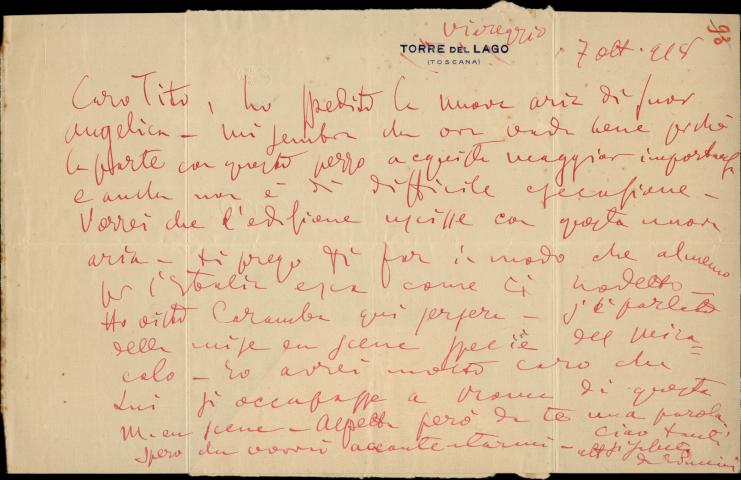 93
Viareggio
TORRE DEL LAGO
(TOSCANA)
7 ott. 918
Caro Tito, ho spedito la nuova aria di Suor
Angelica – mi sembra che ora vada bene perchè
la parte con questo pezzo acquista maggior importanza
e anche non è di difficile esecusione –
Vorrei che l'edisione uscisse con questa nuova
aria – ti prego di far in modo che almeno
per l'Italia esca come ti ho detto –
Ho visto Caramba qui per sera – s'è parlato
della mise en scene specie del mira=
colo – Io avrei molto caro che
lui si occupasse a Roma di questa
M. en scene – Aspetta però da te una parola
spero che vorrai accontentarmi – ciao tanti
aff saluti
da Puccini